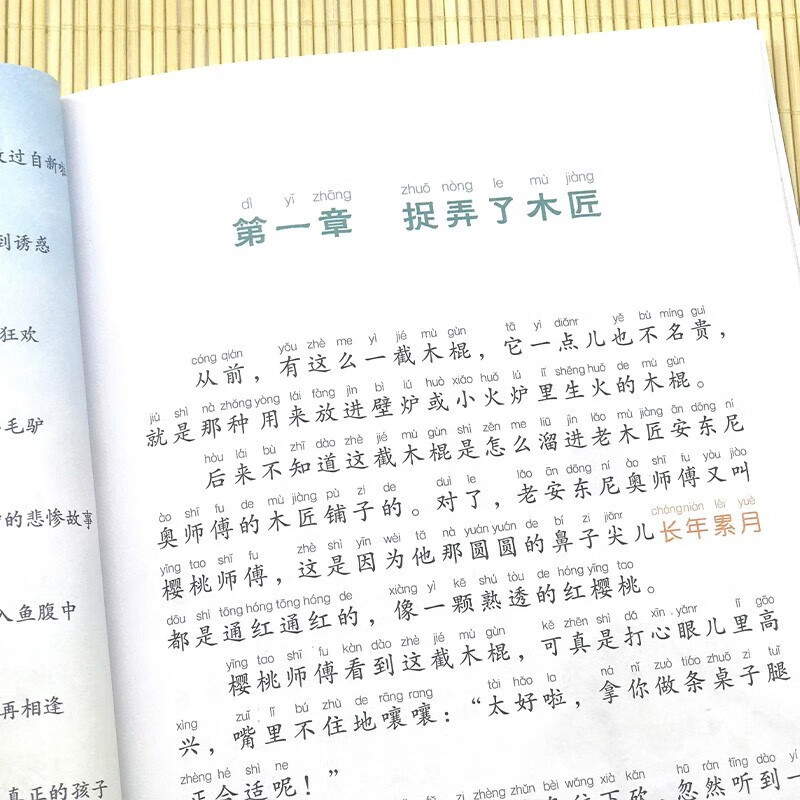 过自新
到诱惑
狂欢
毛驴
的悲惨故事
入鱼腹中
再相逢
真正的孩子
dì yī zhāng zhuō nòng le mù jiàng
第一章 捉弄了木匠
cóng qián yǒu zhè me yì jié mù gùn tā yì diǎnr yě bù míng guì
从前，有这么一截木棍，它一点儿也不名贵，
jiù shì nà zhǒng yòng lái fàng jìn bì lú huò xiǎo huǒ lú lǐ shēng huǒ de mù gùn
就是那种用来放进壁炉或小火炉里生火的木棍。
hòu lái bù zhī dào zhè jié mù gùn shì zěn me liū jìn lǎo mù jiàng ān dōng ní
后来不知道这截木棍是怎么溜进老木匠安东尼
ào shī fu de mù jiàng pù zi de duì le lǎo ān dōng ní ào shī fu yòu jiào
奥师傅的木匠铺子的。对了，老安东尼奥师傅又叫
yīng tao shī fu zhè shì yīn wèi tā nà yuán yuán de bí zi jiānr cháng nián lěi yuè
樱桃师傅，这是因为他那圆圆的鼻子尖儿长年累月
dōu shì tōng hóng tōng hóng de xiàng yì kē shú tòu de hóng yīng tao
都是通红通红的，像一颗熟透的红樱桃。
yīng tao shī fu kàn dào zhè jié mù gùn kě zhēn shì dǎ xīn yǎnr lǐ gāo
樱桃师傅看到这截木棍，可真是打心眼儿里高
xìng zuǐ lǐ bú zhù de rāng rang tài hǎo la ná nǐ zuò tiáo zhuō zi tuǐ
兴，嘴里不住地嚷嚷：“太好啦，拿你做条桌子腿
zhèng hé shì ne
正合适呢！”
zi zhèng zhǔn bèi wǎng xià kǎn hū rán tīng dào yí
往下砍，忽然听到一